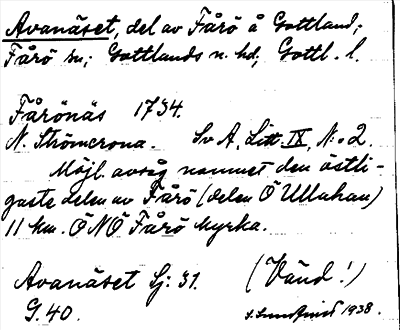 Avanäset, del av Fårö å Gottland;
Fårö sn; Gottlands n. hd; Gottl. l.
Fårönäs 1734.
N. Strömcrona. Sv A, Litt. IX, N:o 2.
Möjl. avsåg namnet den östli-
gaste delen av Fårö (delen Ö Ullahau)
11 km. ÖNÖ Fårö kyrka.
Avanäset Sj: 31. (Vänd!)
G. 40. 1938.